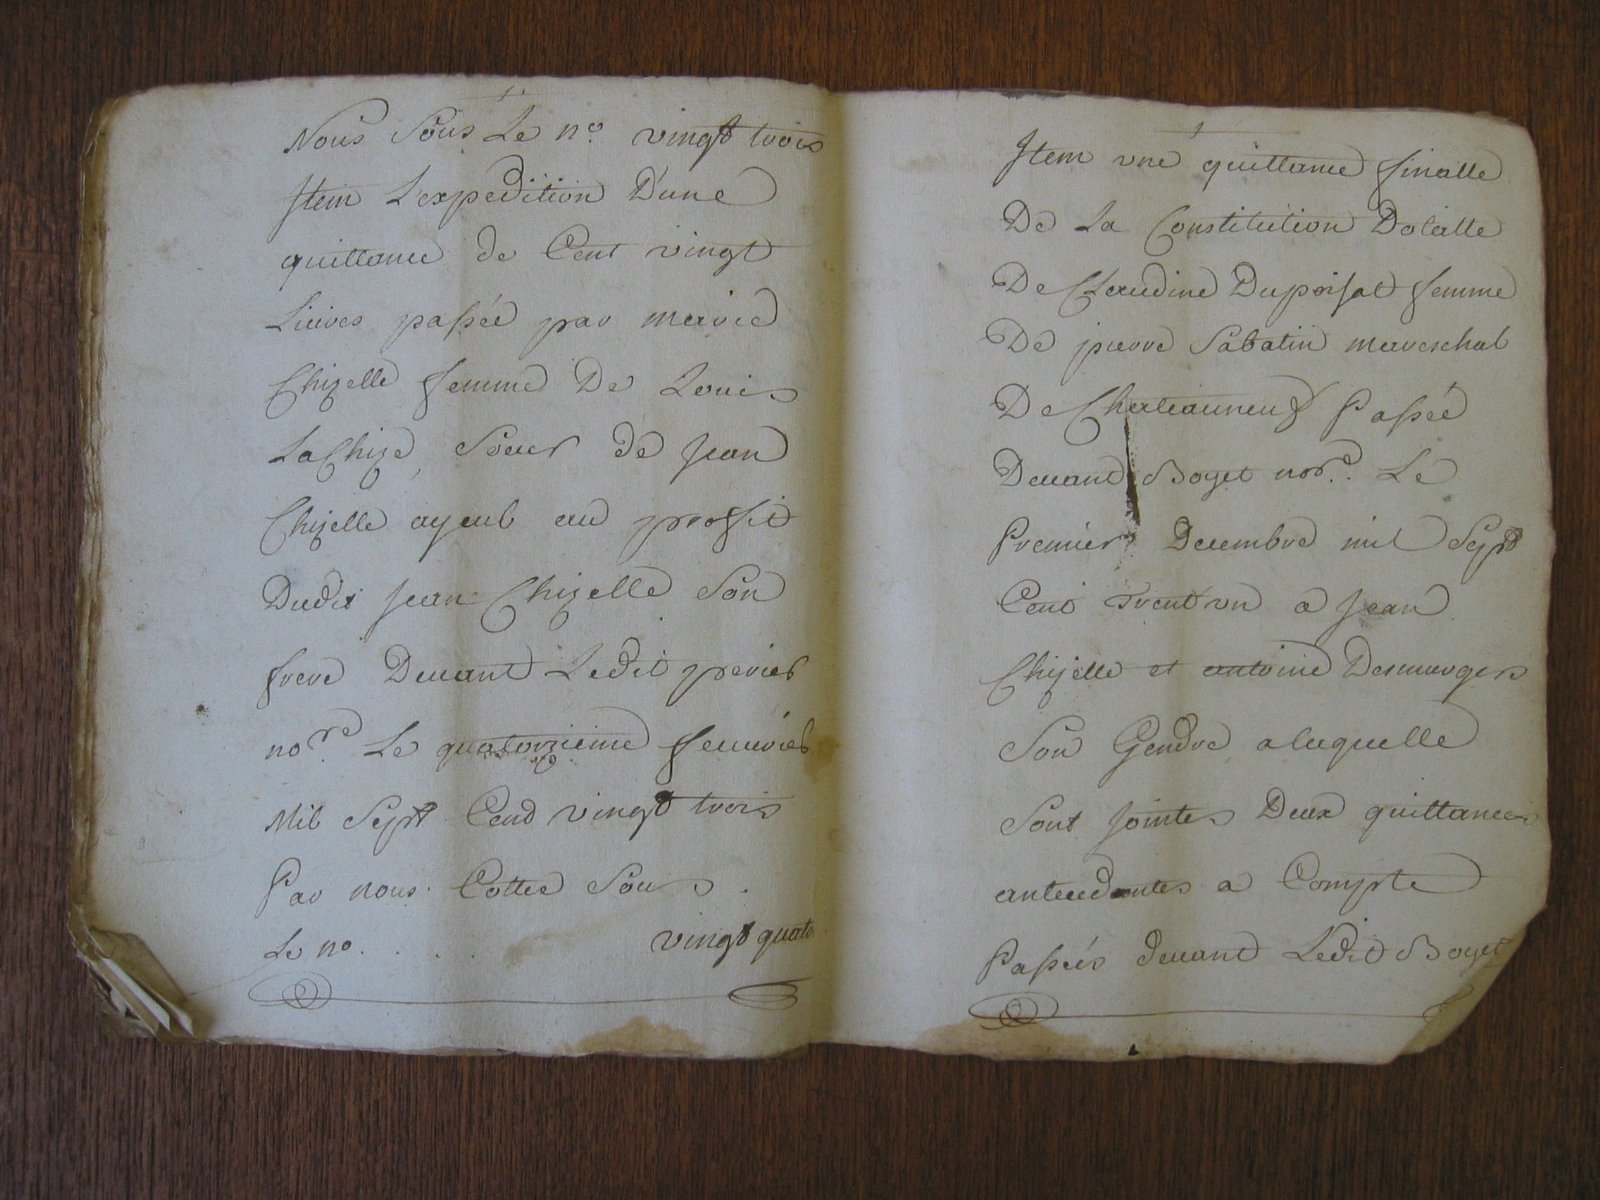 Nous Sous Le no. vingt trois
Item L'expedition D'une
quittance de Cent vingt
Livres passée par marie
Chizelle femme De Louis
Lachize Soeur de Jean
Chizelle ayeul au proffit
Dudit Jean Chizelle Son
frere Devant Ledit perier
nore. Le quatorzieme feuvrier
Mil Sept Cend vingt trois
Par nous Cottee Sous
Le no. . . . vingt quatr
Item une quittance finalle
De La Constitution Dotalle
De Claudine Dupoisat femme
De pierre Sabatin mareschal
De Chateauneuf Passée
Devant Boyet nore. Le
Premier Decembre mil Sept
Cent Trent un a Jean
Chizelle et antoine Desmurgers
Son Gendre a laquelle
Sont Jointes Deux quittances
antecedantes a Compte
Passées devant Ledit Boyet